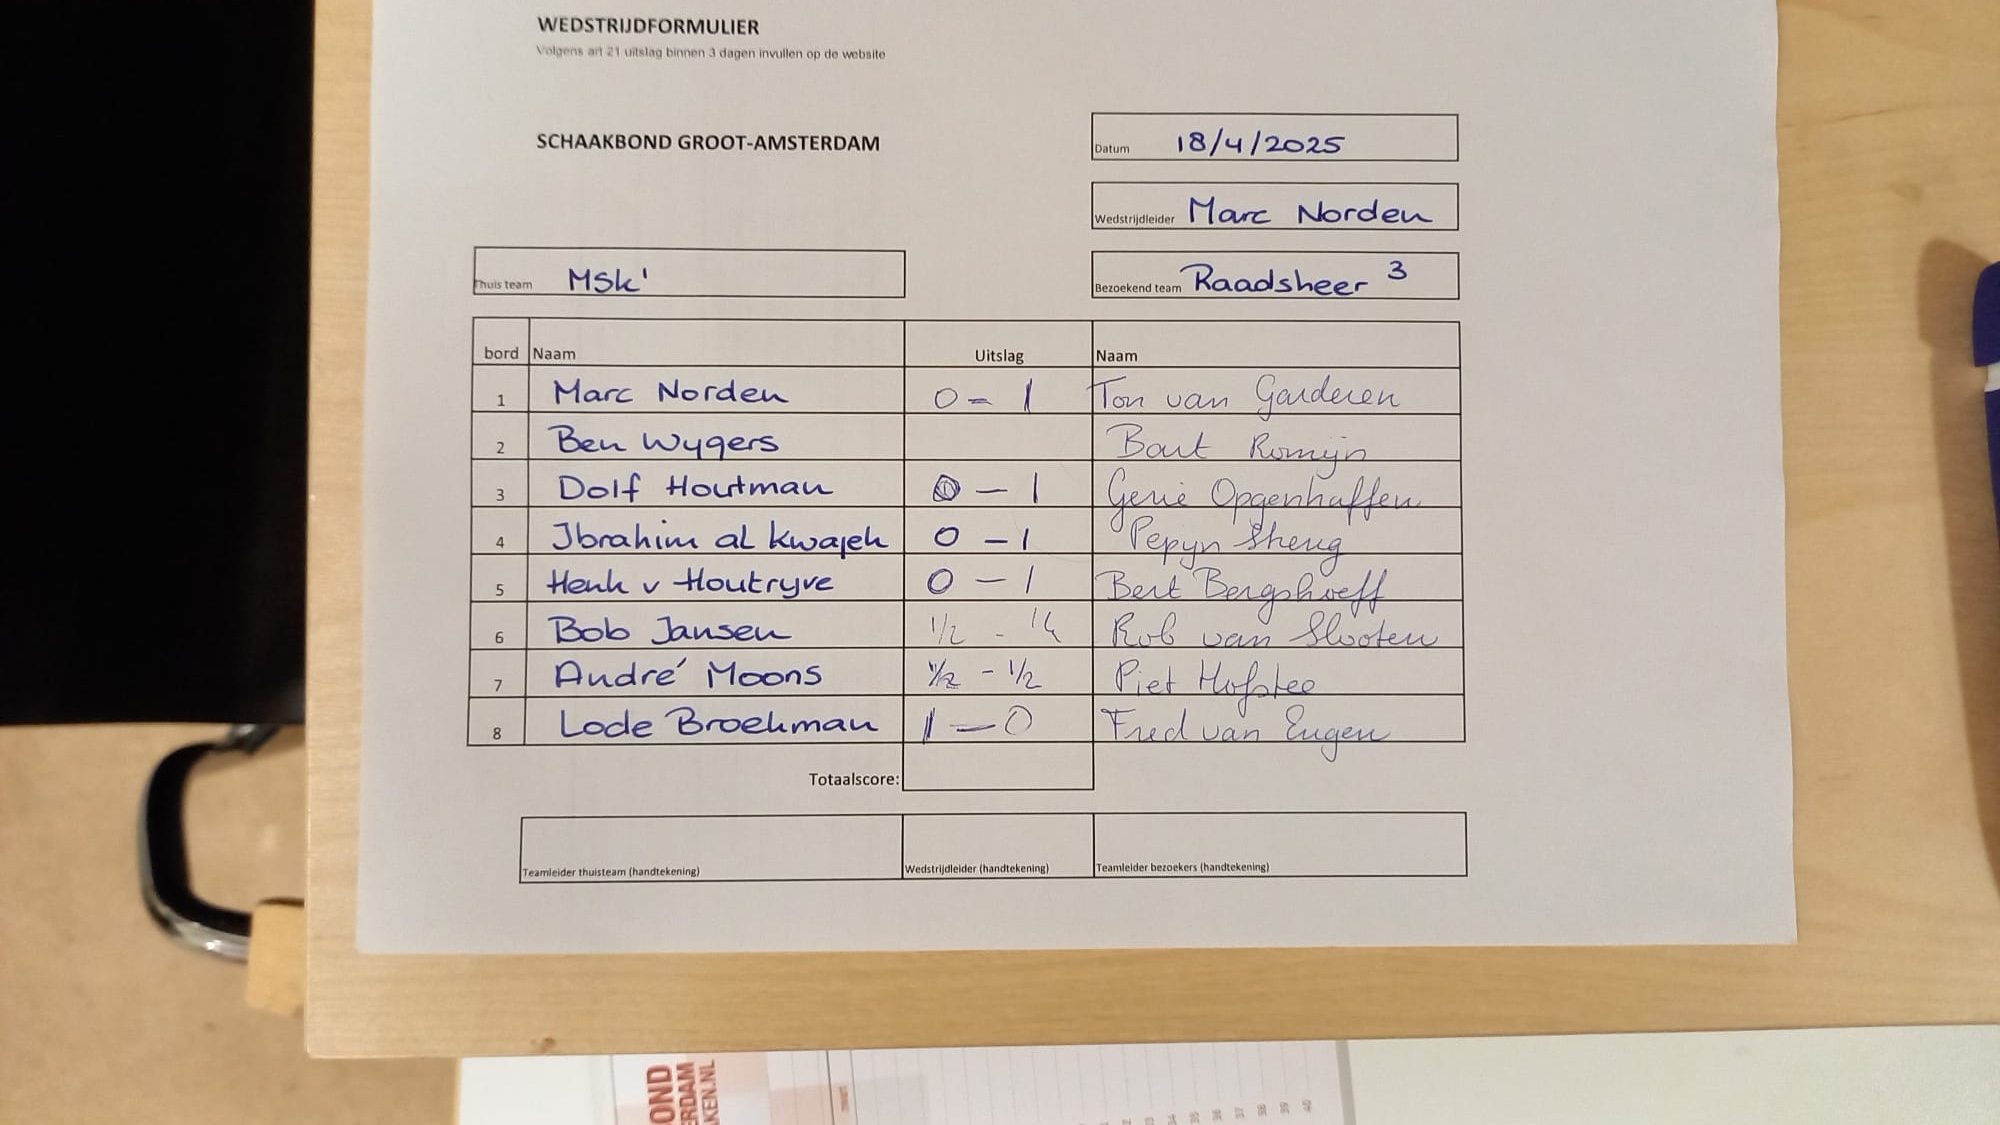 WEDSTRIJDFORMULIER
Volgens art 21 uitslag binnen 3 dagen invullen op de website
SCHAAKBOND GROOT-AMSTERDAM
Datum 18/4/2025
Wedstrijdleider Marc Norden
Thuis team MSK 1
Bezoekend team Raadsheer 3
bord Naam Uitslag Naam
1 Marc Norden 0 - 1 Ton van Garderen
2 Ben Wygers Bout Romijn
3 Dolf Houtman 0 - 1 Gerie Opgenhaffen
4 Ibrahim al Kwajeh 0 - 1 Pepyn Sheng
5 Henk v Houtryve 0 - 1 Bert Bergshoeff
6 Bob Jansen 1/2 - 1/2 Rob van Slooten
7 André Moons 1/2 - 1/2 Piet Hofstee
8 Lode Broekman 1 - 0 Fred van Eugen
Totaalscore:
Teamleider thuisteam (handtekening) Wedstrijdleider (handtekening) Teamleider bezoekers (handtekening)
OND
ERDAM
KEN.NL
zwart
34
35
36
37
38
39
40